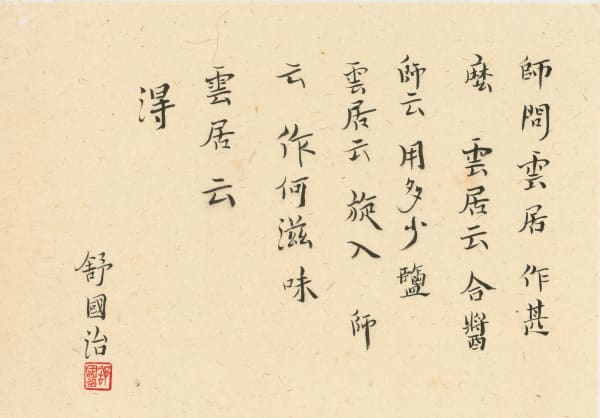 師問雲居 作甚
麼 雲居云 合醬
師云 用多少鹽
雲居云 旋入 師
云 作何滋味
雲居云
得
舒國治
舒國治